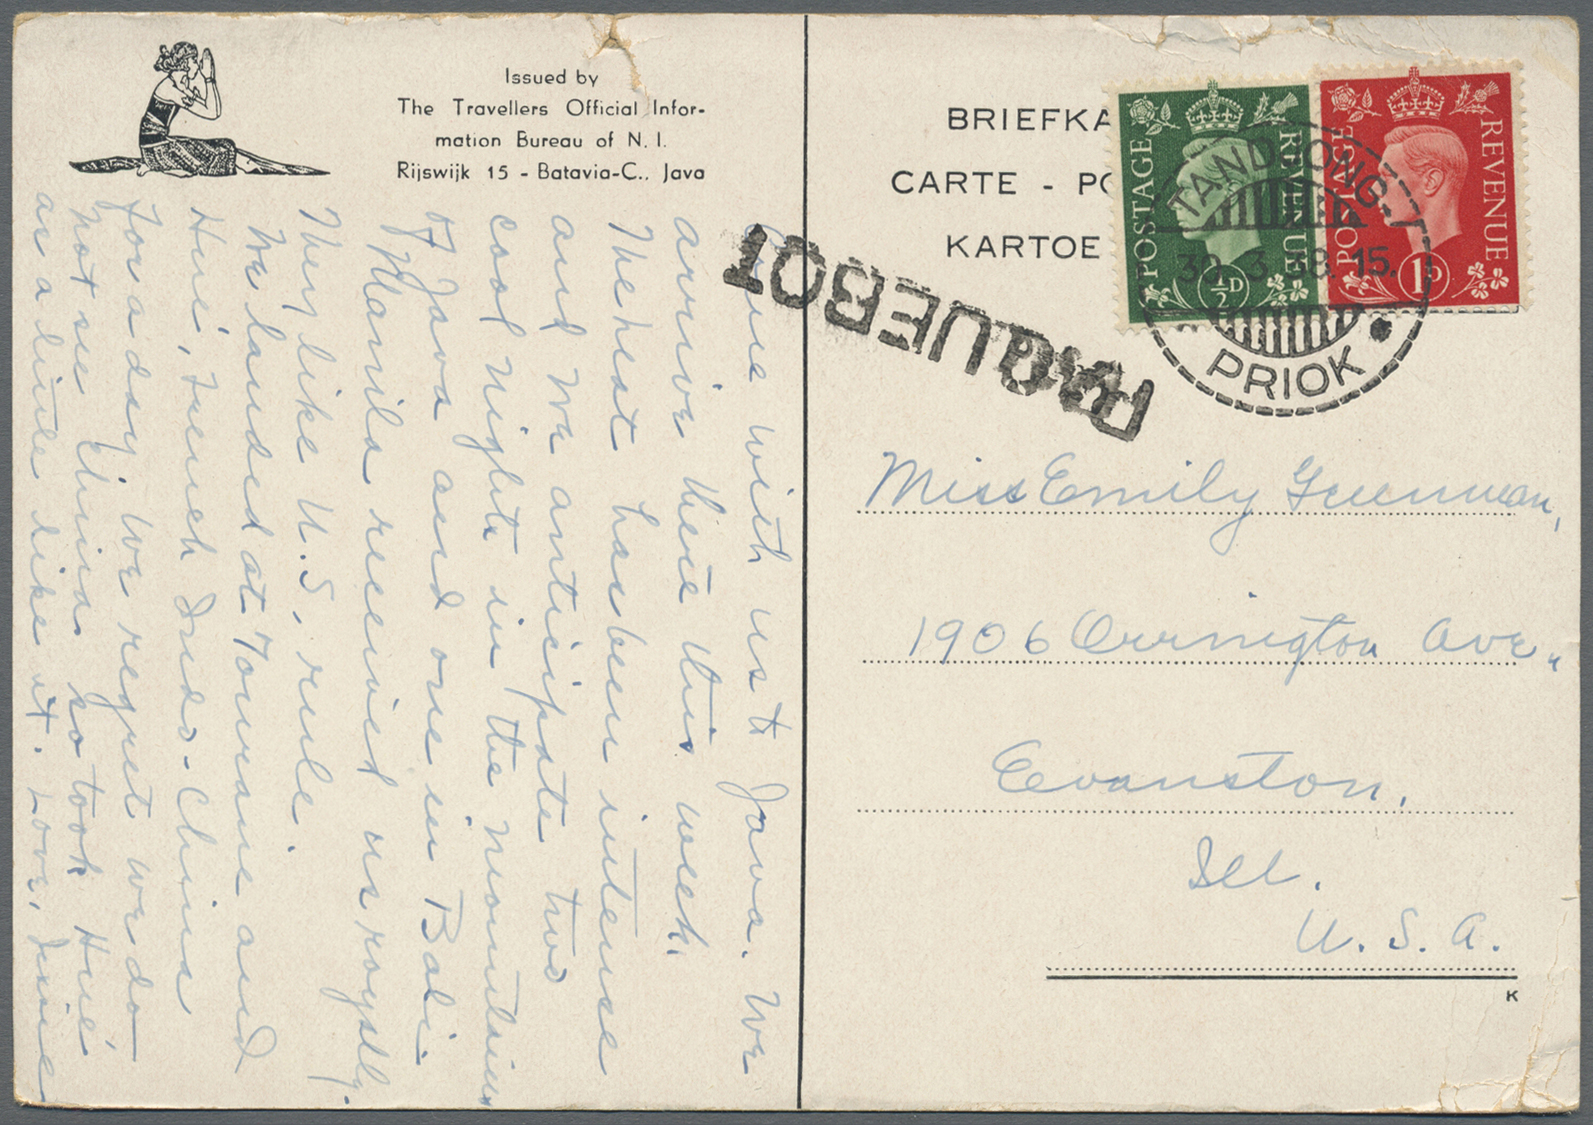 Issued by
The Travellers Official Infor-
mation Bureau of N. I.
Rijswijk 15 - Batavia-C., Java
Come with us to Java. We
arrive there this week.
The heat has been intense
and we anticipate two
cool nights in the mountains
of Java and one in Bali
Manila received us royally.
They like U.S. rule.
We landed at Tourane and
Hué, French Indo-China
for a day. We regret we do
not see China so took Hué
as a little like it. Love,
BRIEFKA
CARTE - PO
KARTOE
POSTAGE
REVENUE
½D
POSTAGE
REVENUE
1D
TANDJONG
30. 3. 38. 15.
PRIOK
PAQUEBOT
Miss Emily Greenman,
1906 Orrington Ave.,
Evanston,
Ill.
U. S. A.
K